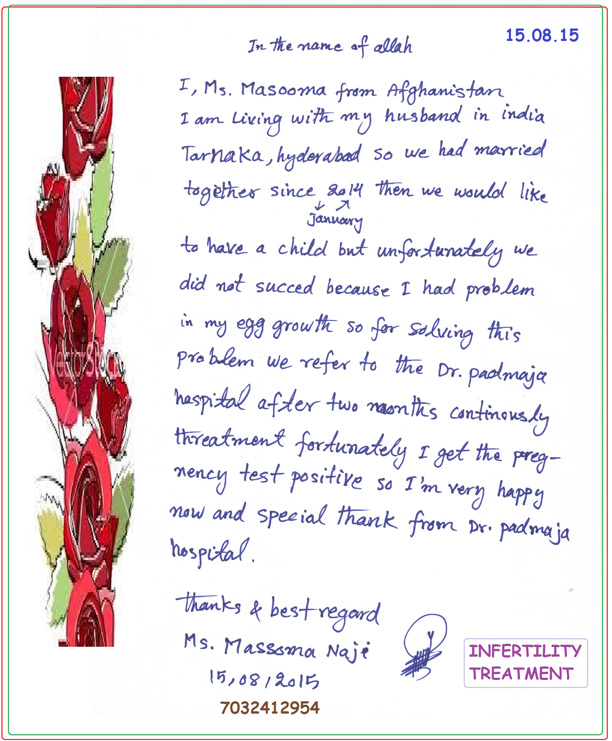 15.08.15
In the name of allah
I, Ms. Masooma from Afghanistan
I am Living with my husband in india
Tarnaka, hyderabad so we had married
together since 2014 then we would like
january
to have a child but unfortunately we
did not succed because I had problem
in my egg growth so for solving this
problem we refer to the Dr. padmaja
hospital after two months continously
threatment fortunately I get the preg-
nency test positive so I'm very happy
now and special thank from Dr. padmaja
hospital.
thanks & best regard
Ms. Massoma Naji
15,08/2015
7032412954
INFERTILITY
TREATMENT